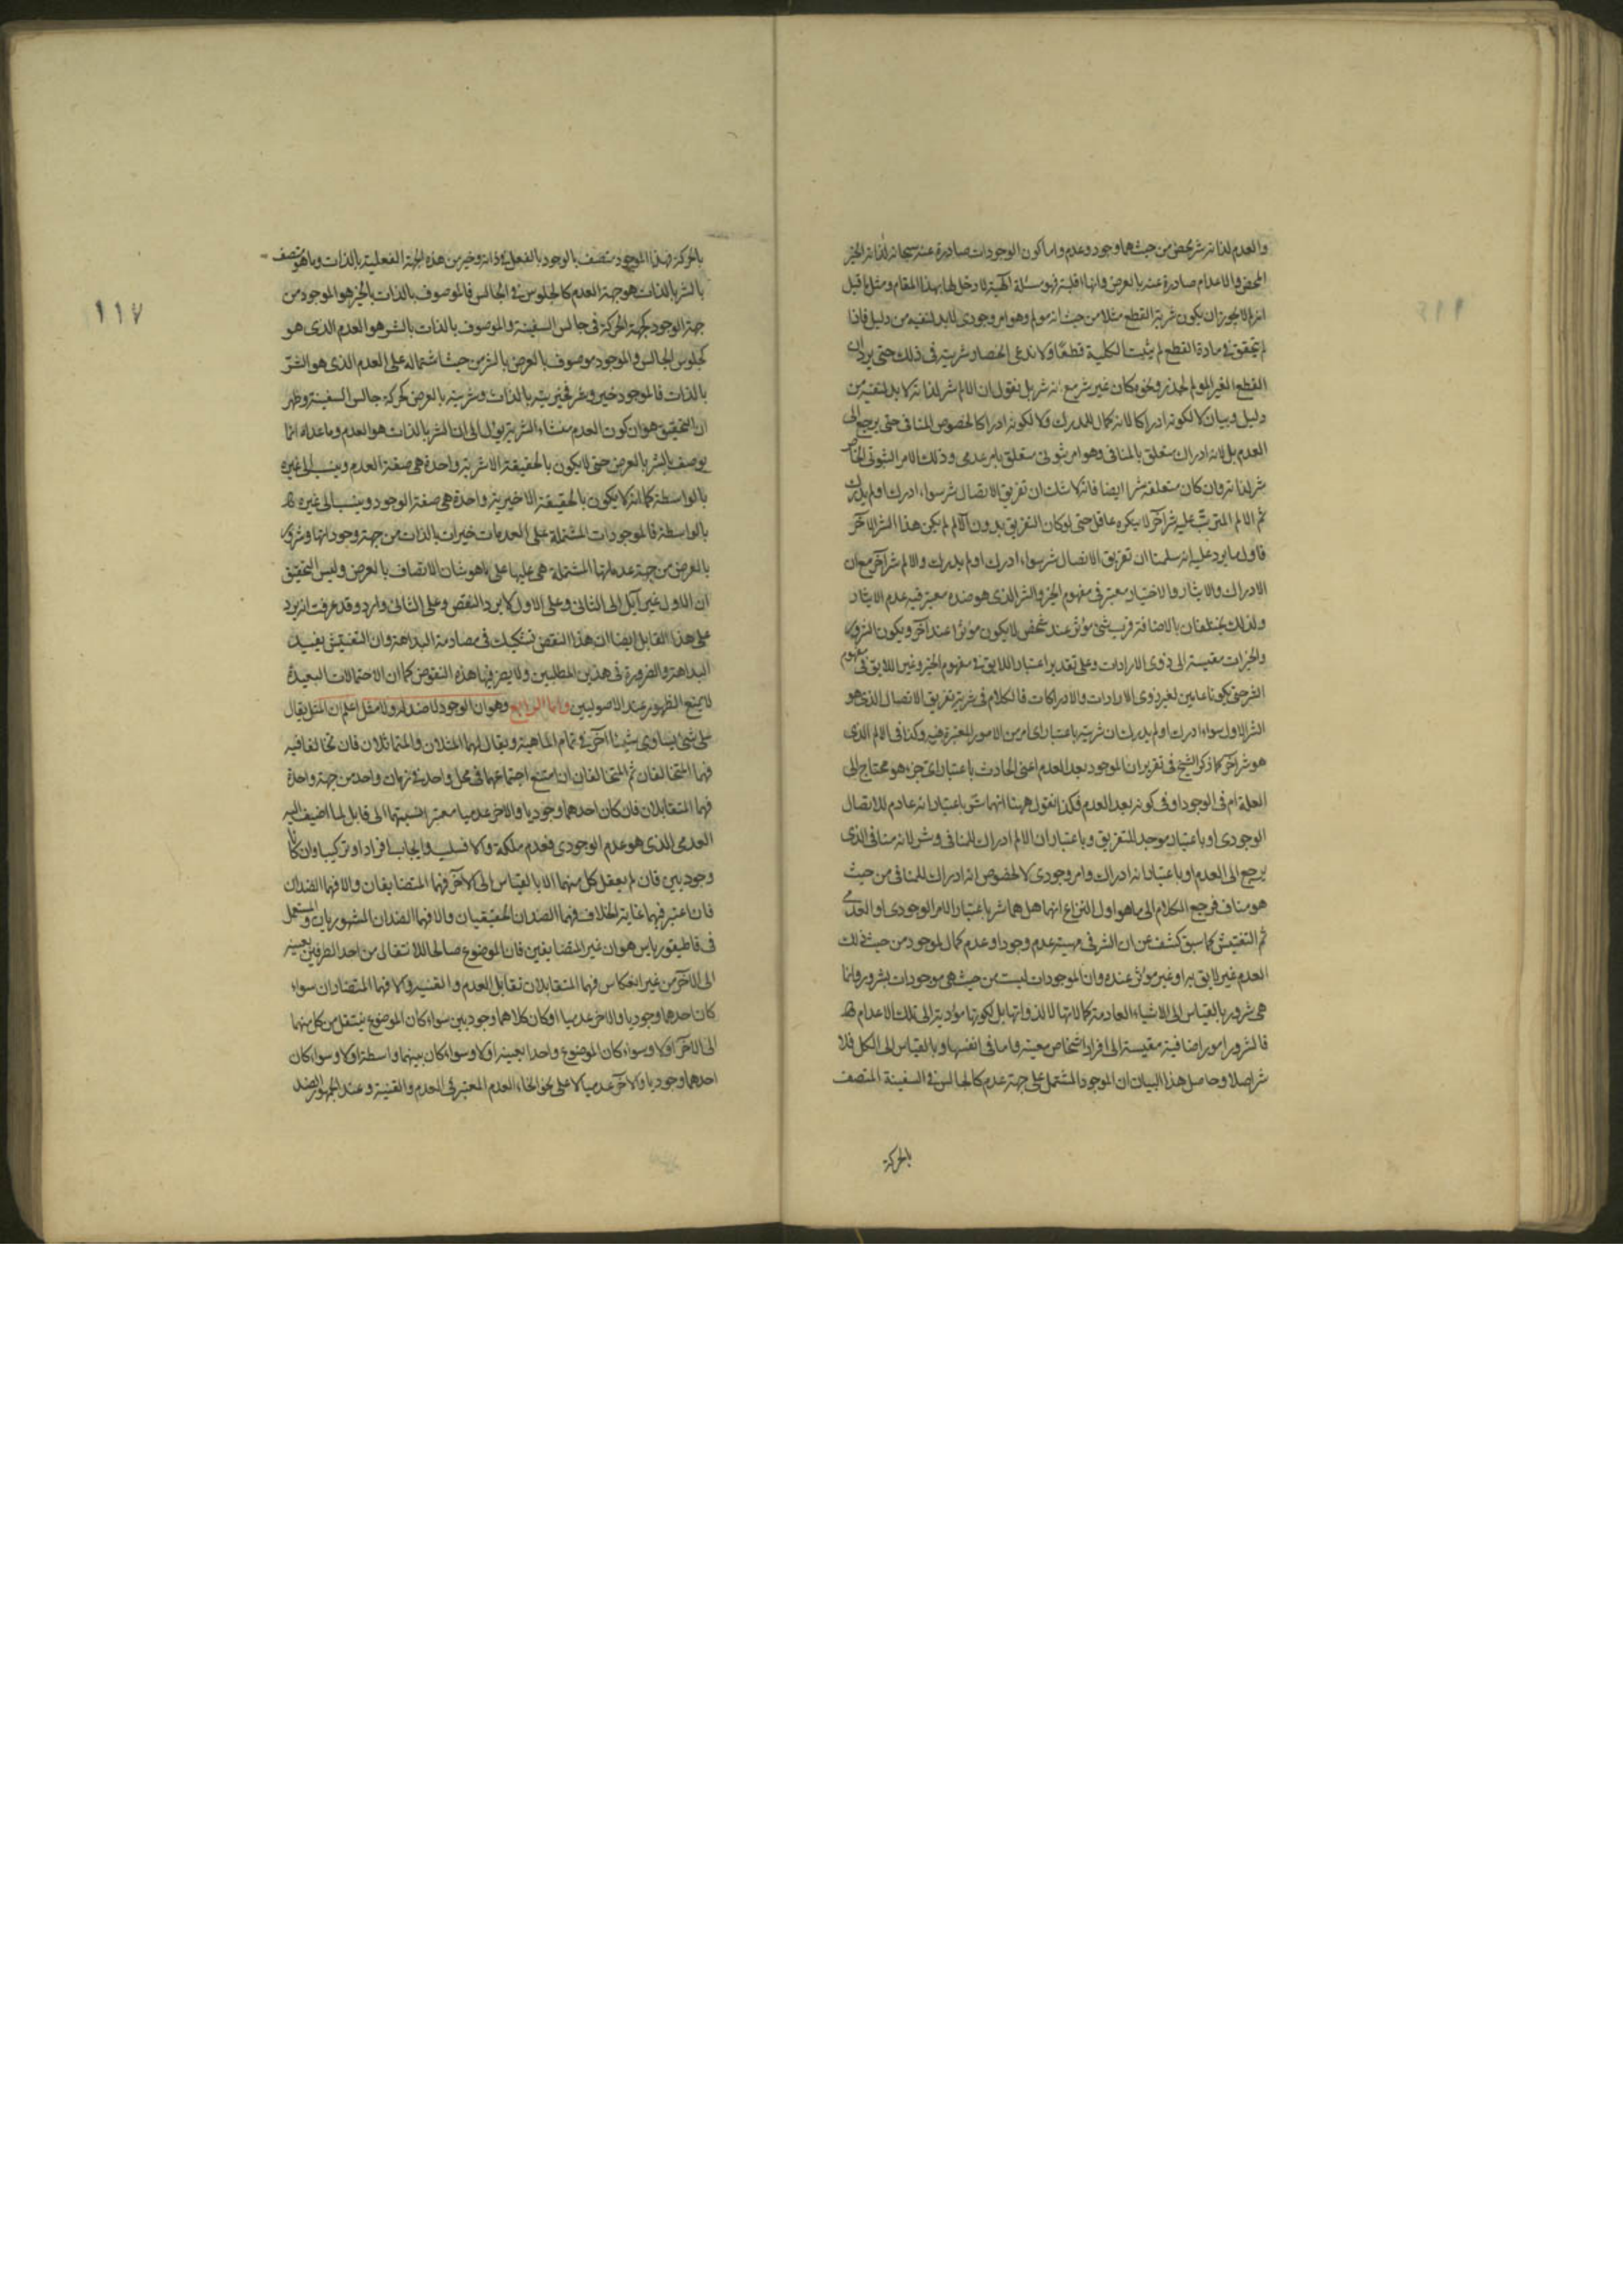 والعدم لذاته شر محض من حيث هما وجود وعدم واما كون الوجودات صادرة عنه سبحانه لذاته الخير
المحض والاعدام صادرة عنه بالعرض وانها اقلية فهو مسئلة الهية لا دخل لها بهذا المقام ومثل ما قيل
انه لا يجوز ان يكون شرية القطع مثلا من حيث انه مولم وهو امر وجودى لا بد لنفيه من دليل فاذا
لم يتحقق فى مادة القطع لم يثبت الكلية قطعا ولا ندعى انحصار شريته فى ذلك حتى يرد ان
القطع الغير المولم لخدر ونحوه كان غير شر مع انه شر بل نقول ان الالم شر لذاته لا بد لنفيه من
دليل وبيان لا لكونه ادراكا لانه كمال للمدرك ولا لكونه ادراكا لخصوص المنافى حتى يرجع الى
العدم بل لانه ادراك متعلق بالمنافى وهو امر ثبوتى متعلق بامر عدمى وذلك الامر الثبوتى الخاص
شر لذاته وان كان متعلقه شرا ايضا فانه لا شك ان تفريق الاتصال شر سواء ادرك او لم يدرك
ثم الالم المترتب عليه شر آخر لا ينكره عاقل حتى لو كان التفريق بدون الالم لم يكن هذا الشر الآخر
فاول ما يرد عليه انه سلمنا ان تفريق الاتصال شر سواء ادرك او لم يدرك والالم شر آخر مع ان
الادراك والايثار والاختيار معتبر فى مفهوم الخير والشر الذى هو ضده معتبر فيه عدم الايثار
ولذلك يختلفان بالاضافة فرب شئ مؤثر عند شخص لا يكون مؤثرا عند آخر ويكون الشرور
والخيرات مقيسة الى ذوى الارادات وعلى تقدير اعتبار اللايق فى مفهوم الخير وغير اللايق فى مفهوم
الشر حتى يكونا عامين لغير ذوى الارادات والادراكات فالكلام فى شرية تفريق الاتصال الذى هو
الشر الاول سواء ادرك او لم يدرك ان شريته باعتبار اى امر من الامور المعتبرة فيه وكذا فى الالم الذى
هو شر آخر كما ذكر الشيخ فى تقرير ان الموجود بعد العدم اعنى الحادث باعتبار اى جزء هو محتاج الى
العلة ام فى الوجود او فى كونه بعد العدم فكذا نقول ههنا انهما شر باعتبار انه عادم للاتصال
الوجودى او باعتبار موجد للتفريق وباعتبار ان الالم ادراك للمنافى وشر لانه منافى الذى
يرجع الى العدم او باعتبار انه ادراك وامر وجودى لا لخصوص انه ادراك للمنافى من حيث
هو مناف فيرجع الكلام الى ما هو اول النزاع انهما هل هما شر باعتبار الامر الوجودى او العدمى
ثم التفتيش كما سبق كشف عن ان الشر فى مهيته عدم وجود او عدم كمال لموجود من حيث ذلك
العدم غير لايق به او غير مؤثر عنده وان الموجودات ليست من حيث هى موجودات بشرور وانما
هى شرور بالقياس الى الاشياء العادمة كمالاتها لا لذواتها بل لكونها مؤدية الى تلك الاعدام
فالشرور امور اضافية مقيسة الى افراد اشخاص معينة واما فى انفسها وبالقياس الى الكل فلا
شر اصلا وحاصل هذا البيان ان الموجود المشتمل على جهة عدم كالجالس فى السفينة المتصف
بالحركة
١١٧
بالحركة فهذا الموجود متصف بالوجود بالفعل فى ذاته وخير من هذه الجهة الفعلية بالذات وما هو متصف
بالشر بالذات هو جهة العدم كالجلوس فى الجالس فالموصوف بالذات بالخير هو الموجود من
جهة الوجود كجهة الحركة فى جالس السفينة والموصوف بالذات بالشر هو العدم الذى هو
كجلوس الجالس والموجود موصوف بالعرض بالشر من حيث اشتماله على العدم الذى هو الشر
بالذات فالموجود خير وشر فخيريته بالذات وشريته بالعرض كحركة جالس السفينة وظهر
ان التحقيق هو ان كون العدم منشاء الشرية يؤل الى ان الشر بالذات هو العدم وما عداه انما
يوصف بالشر بالعرض حتى لا يكون بالحقيقة الا شرية واحدة هى صفة العدم وينسب الى غيره
بالواسطة كما انه لا يكون بالحقيقة الا خيرية واحدة هى صفة الوجود وينسب الى غيره
بالواسطة فالموجودات المشتملة على العدمات خيرات بالذات من جهة وجوداتها وشرور
بالعرض من جهة عدماتها المشتملة هى عليها على ما هو شان الاتصاف بالعرض وليس التحقيق
ان الاول غير آيل الى الثانى وعلى الاول لا يرد النقض وعلى الثانى وارد وقد عرفت انه يرد
على هذا القابل ايضا ان هذا النقض تشكيك فى مصادمة البداهة وان التفتيش يفيد
البداهة والضرورة فى هذين المطلبين ولا يضر فيها هذه النقوض كما ان الاحتمالات البعيدة
لا يمنع الظهور عند الاصوليين واما الرابع وهو ان الوجود لا ضد له ولا مثل اعلم ان المثل يقال
على شئ يساوى شيئا آخر فى تمام الماهية ويقال لهما المثلان والمتماثلان فان تخالفا فيه
فهما المتخالفان ثم المتخالفان ان امتنع اجتماعهما فى محل واحد فى زمان واحد من جهة واحدة
فهما المتقابلان فان كان احدهما وجوديا والاخر عدميا معتبرا نسبتهما الى قابل لما اضيف اليه
العدمى الذى هو عدم الوجودى فعدم ملكة والا فسلب وايجاب افرادا وتركيبا وان كانا
وجوديين فان لم يعقل كل منهما الا بالقياس الى الآخر فهما المتضايفان والا فهما الضدان
فان اعتبر فيهما غاية الخلاف فهما الضدان الحقيقيان والا فهما الضدان المشهوريان والمستعمل
فى قاطيغورياس هو ان غير المتضايفين فان الموضوع صالحا للانتقال من احد الطرفين بعينه
الى الآخر من غير انعكاس فهما المتقابلان تقابل العدم والقنية والا فهما المتضادان سواء
كان احدهما وجوديا والاخر عدميا او كان كلاهما وجوديين سواء كان الموضوع ينتقل من كل منهما
الى الآخر اولا وسواء كان الموضوع واحدا بعينه اولا وسواء كان بينهما واسطة اولا وسواء كان
احدهما وجوديا والآخر عدميا لا على نحو انحاء العدم المعتبر فى العدم والقنية وعند الجمهور الضد